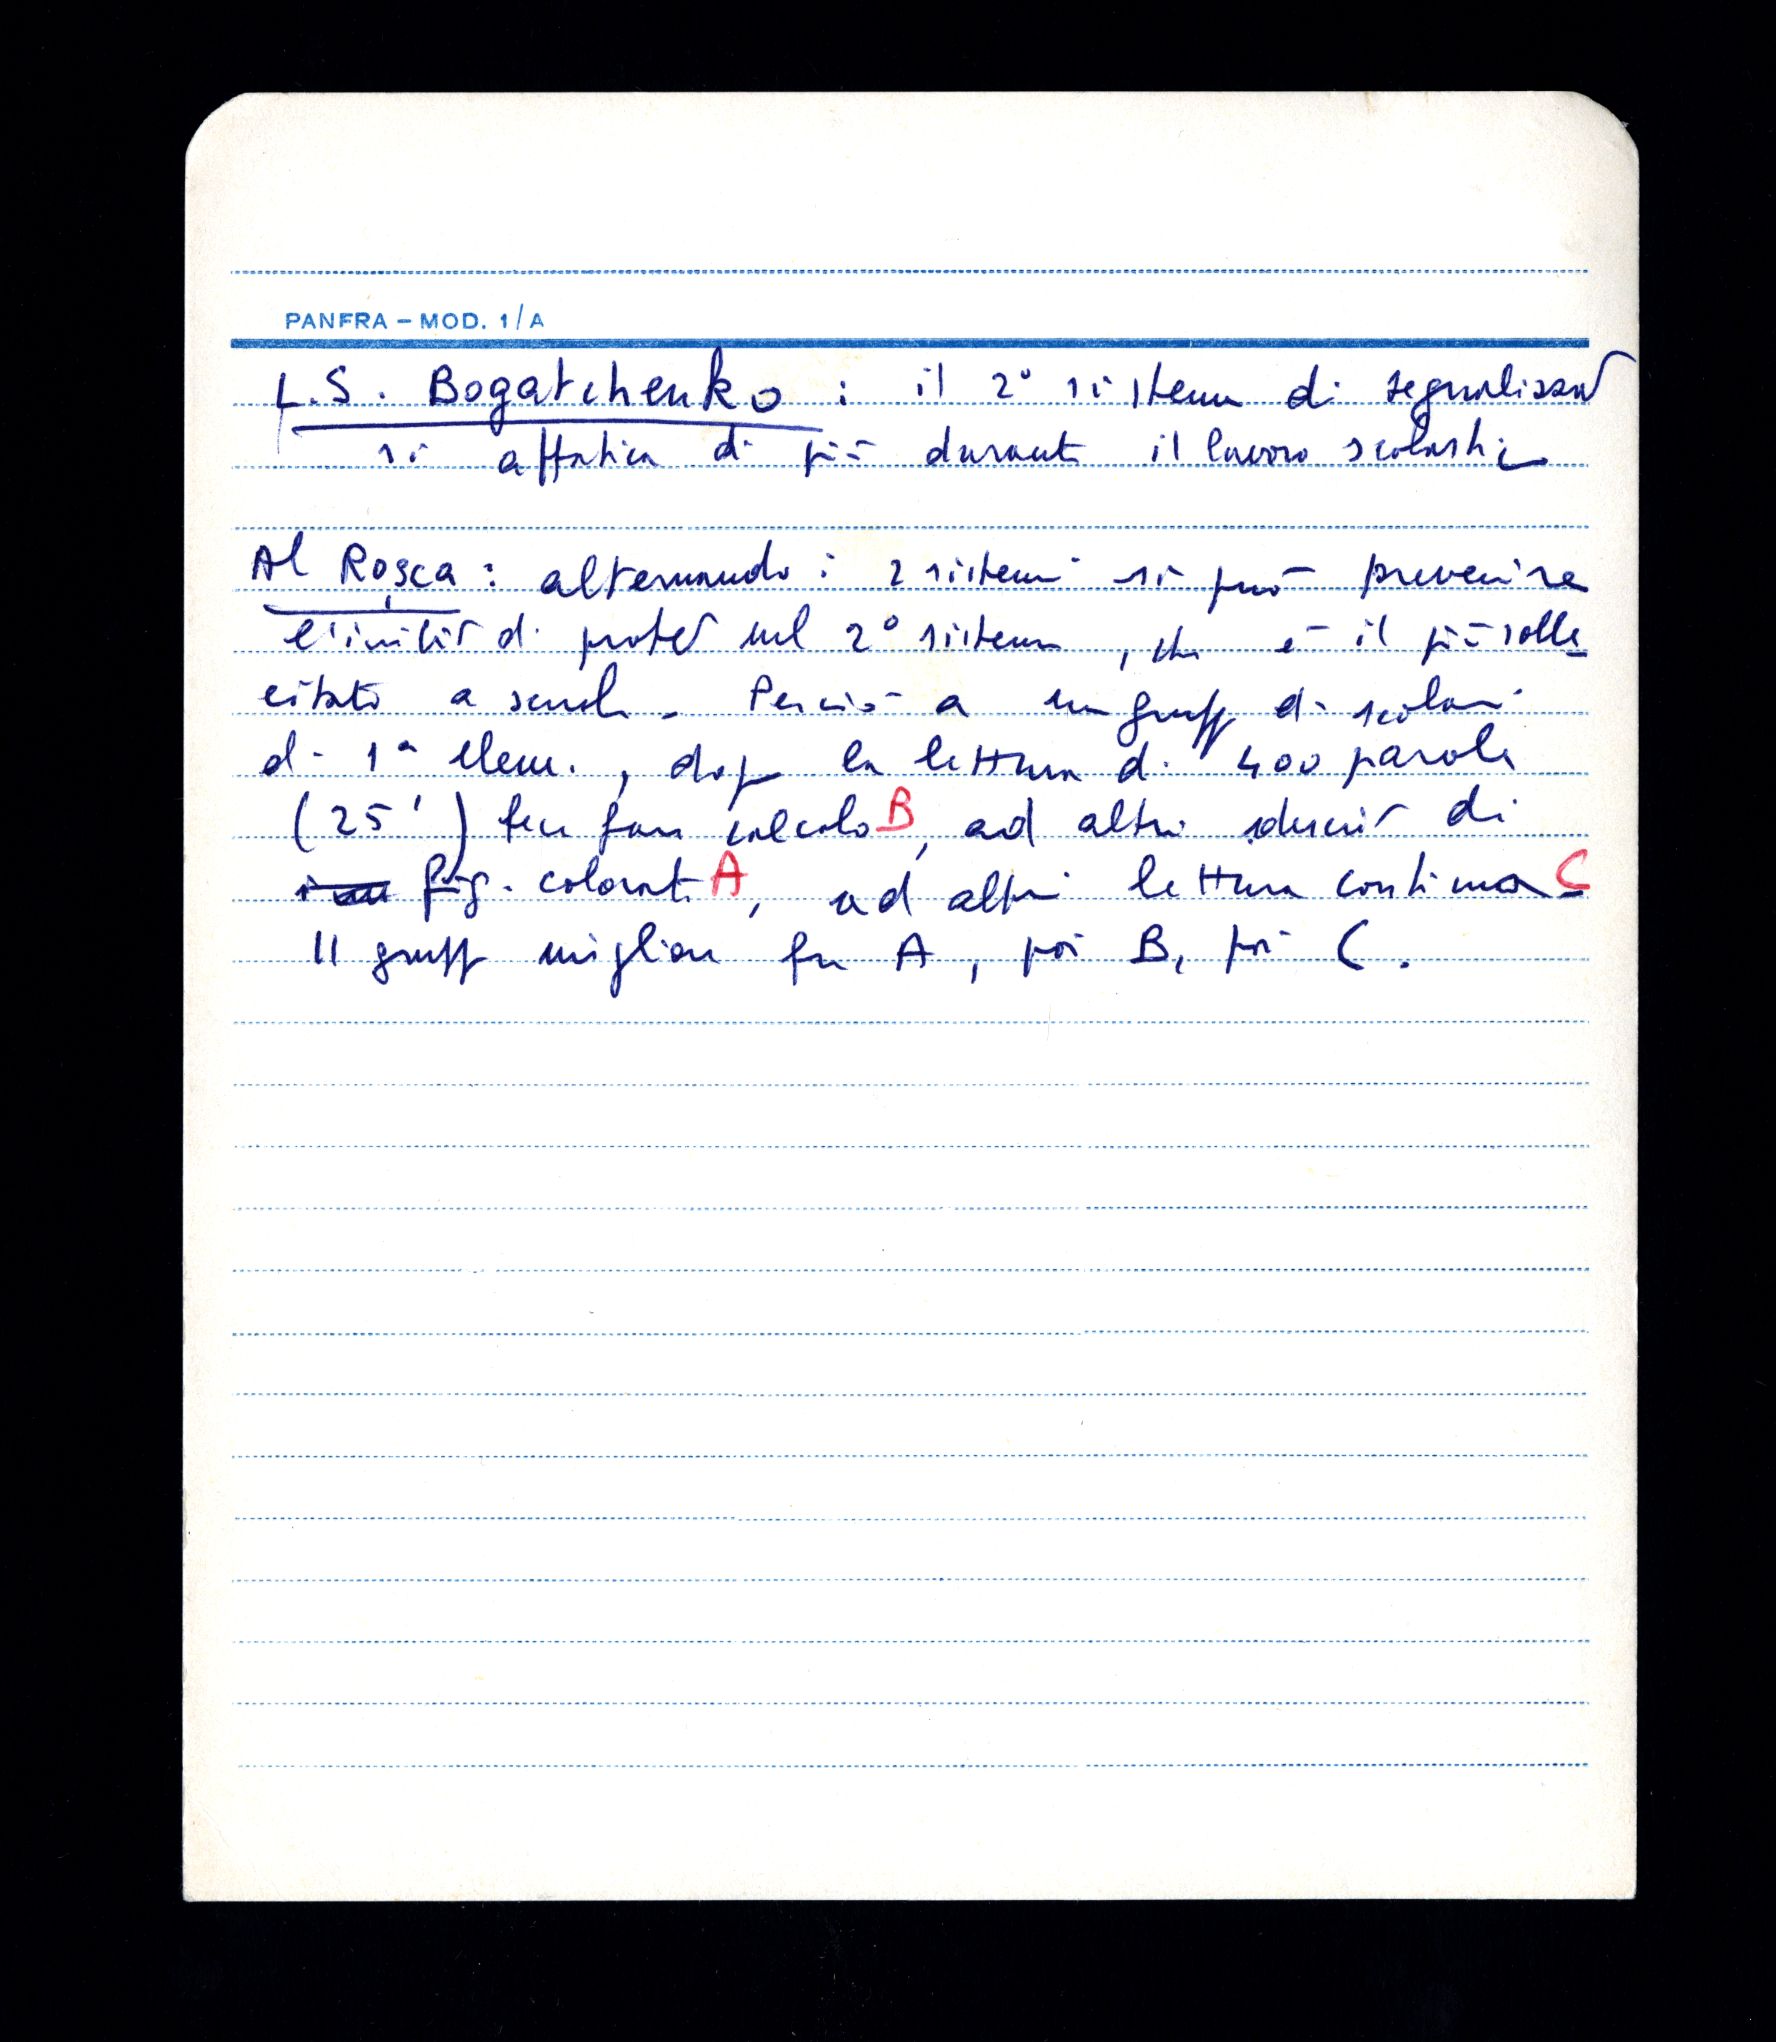 PANFRA – MOD. 1/A
L.S. Bogatchenko : il 2° sistema di segnalizzaz
si affatica di più durante il lavoro scolastico
Al Roşca : alternando i 2 sistemi si può prevenire
l'inibiz di protez nel 2° sistema, che è il più solle
citato a scuola. Perciò a un gruppo di scolari
di 1ª elem., dopo la lettura di 400 parole
(25') fece fare calcolo B, ad altri descriz di
fig. colorate A, ad altri lettura continua C
Il gruppo migliore fu A, poi B, poi C.